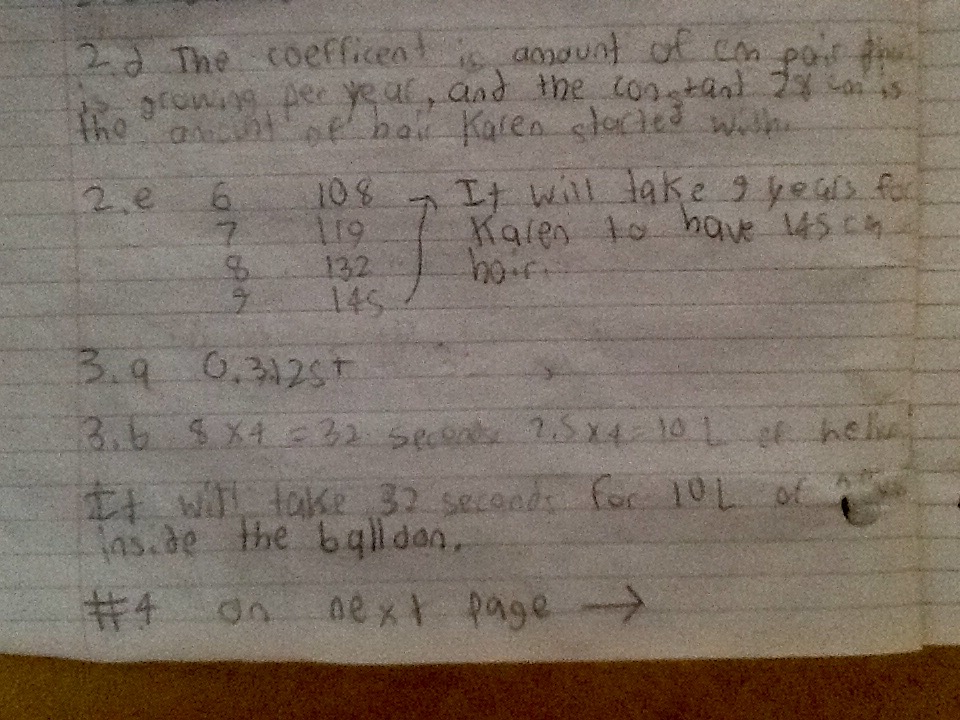 2.d The coefficent is amount of cm
is growing per year, and the constant 28 cm is
the amount of hair Karen started with.
2.e 6 108 → It will take 9 years for
7 119 Karen to have 145 cm
8 132 hair.
9 145
3.a 0.3125t
3.b 8 x 4 = 32 seconds 2.5 x 4 = 10 L of
It will take 32 seconds for 10L of
inside the balldon.
#4 on next page →